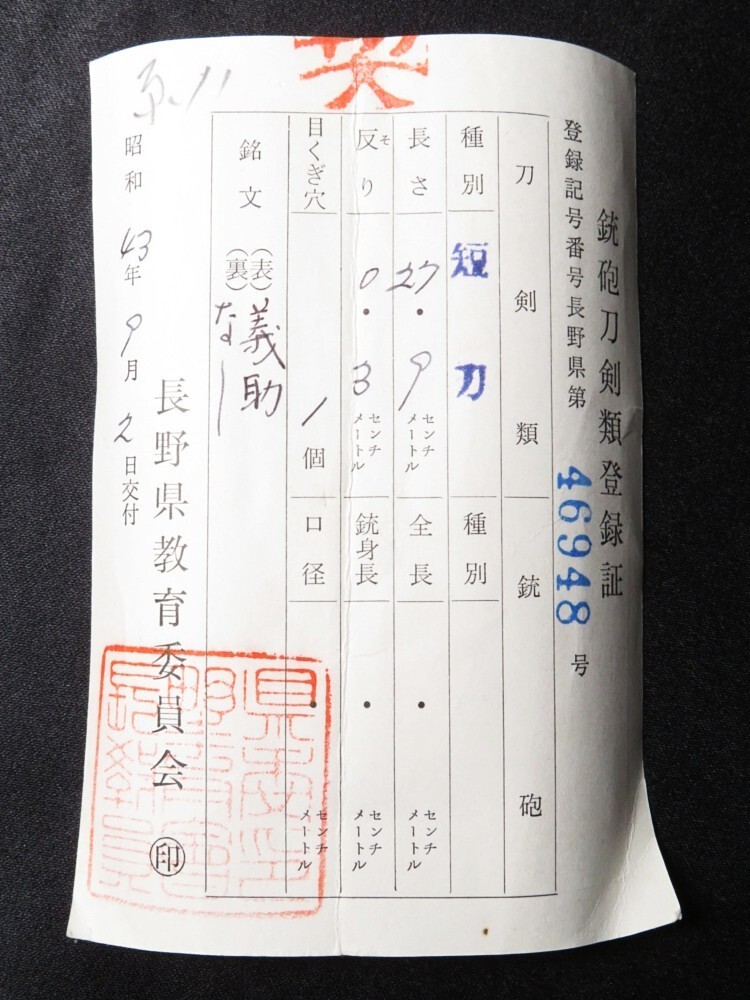 銃砲刀剣類登録証
登録記号番号長野県第 46948 号
刀剣類
種別 短刀
長さ 27.9 センチメートル
反り そ 0.3 センチメートル
目くぎ穴 1個
銘文 (表) 義助
(裏) なし
銃砲
種別
全長 ・ センチメートル
銃身長 ・ センチメートル
口径 ・ センチメートル
昭和43年9月2日交付
長野県教育委員会 ㊞